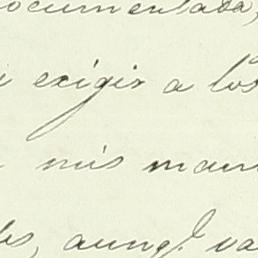 documentada,
exigir a los
mis man
aunqe. va